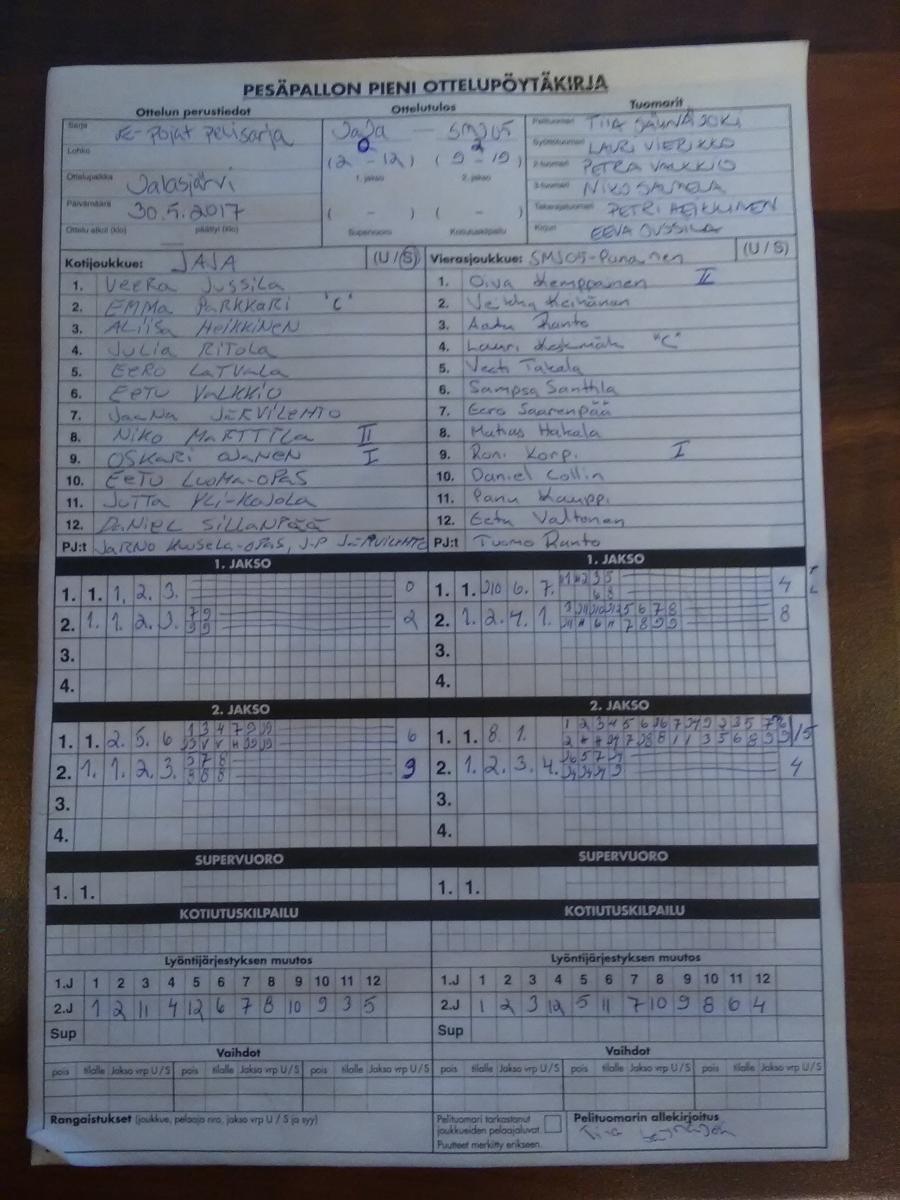 PESÄPALLON PIENI OTTELUPÖYTÄKIRJA
Ottelun perustiedot Ottelutulos Tuomarit
Sarja E-pojat pelisarja JaJa - SMJ05 Pelituomari TIIA
Lohko 0 2 Syöttötuomari LAURI VIERIKKO
(2 - 12) (9 - 19) 2-tuomari PETRA VALKKIO
Ottelupaikka Jalasjärvi 1. jakso 2. jakso 3-tuomari NIKO
Päivämäärä 30.5.2017 ( - ) ( - ) Takarajatuomari PETRI HEIKKINEN
Ottelu alkoi (klo) päättyi (klo) Supervuoro Kotiutuskilpailu Kirjuri EEVA JUSSILA
Kotijoukkue: JAJA (U / S) Vierasjoukkue: SMJ05-Punainen (U / S)
1. VEERA JUSSILA 1. Oiva Kemppainen II
2. EMMA PARKKARI "C" 2. Veikka Keinänen
3. ALIISA HEIKKINEN 3. Aatu Ranto
4. JULIA RITOLA 4. Lauri "C"
5. EERO LATVALA 5. Veeti Takala
6. EETU VALKKIO 6. Sampsa Santtila
7. JAANA JÄRVILEHTO 7. Eero Saarenpää
8. NIKO MARTTILA II 8. Matias Hakala
9. OSKARI I 9. Roni Korpi I
10. EETU LUOMA-OPAS 10. Daniel Collin
11. JUTTA YLI-KOJOLA 11. Panu Kauppi
12. DANIEL SILLANPÄÄ 12. Eetu Valtonen
PJ:t JARNO KUUSELA-OPAS, J-P JÄRVILEHTO PJ:t Tuomo Ranto
1. JAKSO 1. JAKSO
1. 1. 1. 2. 3. 0 1. 1. 6. 7. 4
2. 1. 1. 2. 3. 2 2. 1. 2. 4. 1. 8
3. 3.
4. 4.
2. JAKSO 2. JAKSO
1. 1. 2. 5. 6 6 1. 1. 8. 1. 15
2. 1. 1. 2. 3. 9 2. 1. 2. 3. 4. 4
3. 3.
4. 4.
SUPERVUORO SUPERVUORO
1. 1. 1. 1.
KOTIUTUSKILPAILU KOTIUTUSKILPAILU
Lyöntijärjestyksen muutos Lyöntijärjestyksen muutos
1.J 1 2 3 4 5 6 7 8 9 10 11 12 1.J 1 2 3 4 5 6 7 8 9 10 11 12
2.J 1 2 11 4 12 6 7 8 10 9 3 5 2.J 1 2 3 12 5 11 7 10 9 8 6 4
Sup Sup
Vaihdot Vaihdot
pois tilalle Jakso vrp U / S pois tilalle Jakso vrp U / S pois tilalle Jakso vrp U / S pois tilalle Jakso vrp U / S pois tilalle Jakso vrp U / S pois tilalle Jakso vrp U / S
Rangaistukset (joukkue, pelaaja nro, jakso vrp U / S ja syy) Pelituomari tarkastanut Pelituomarin allekirjoitus
joukkueiden pelaajaluvat. Tiia
Puutteet merkitty erikseen.